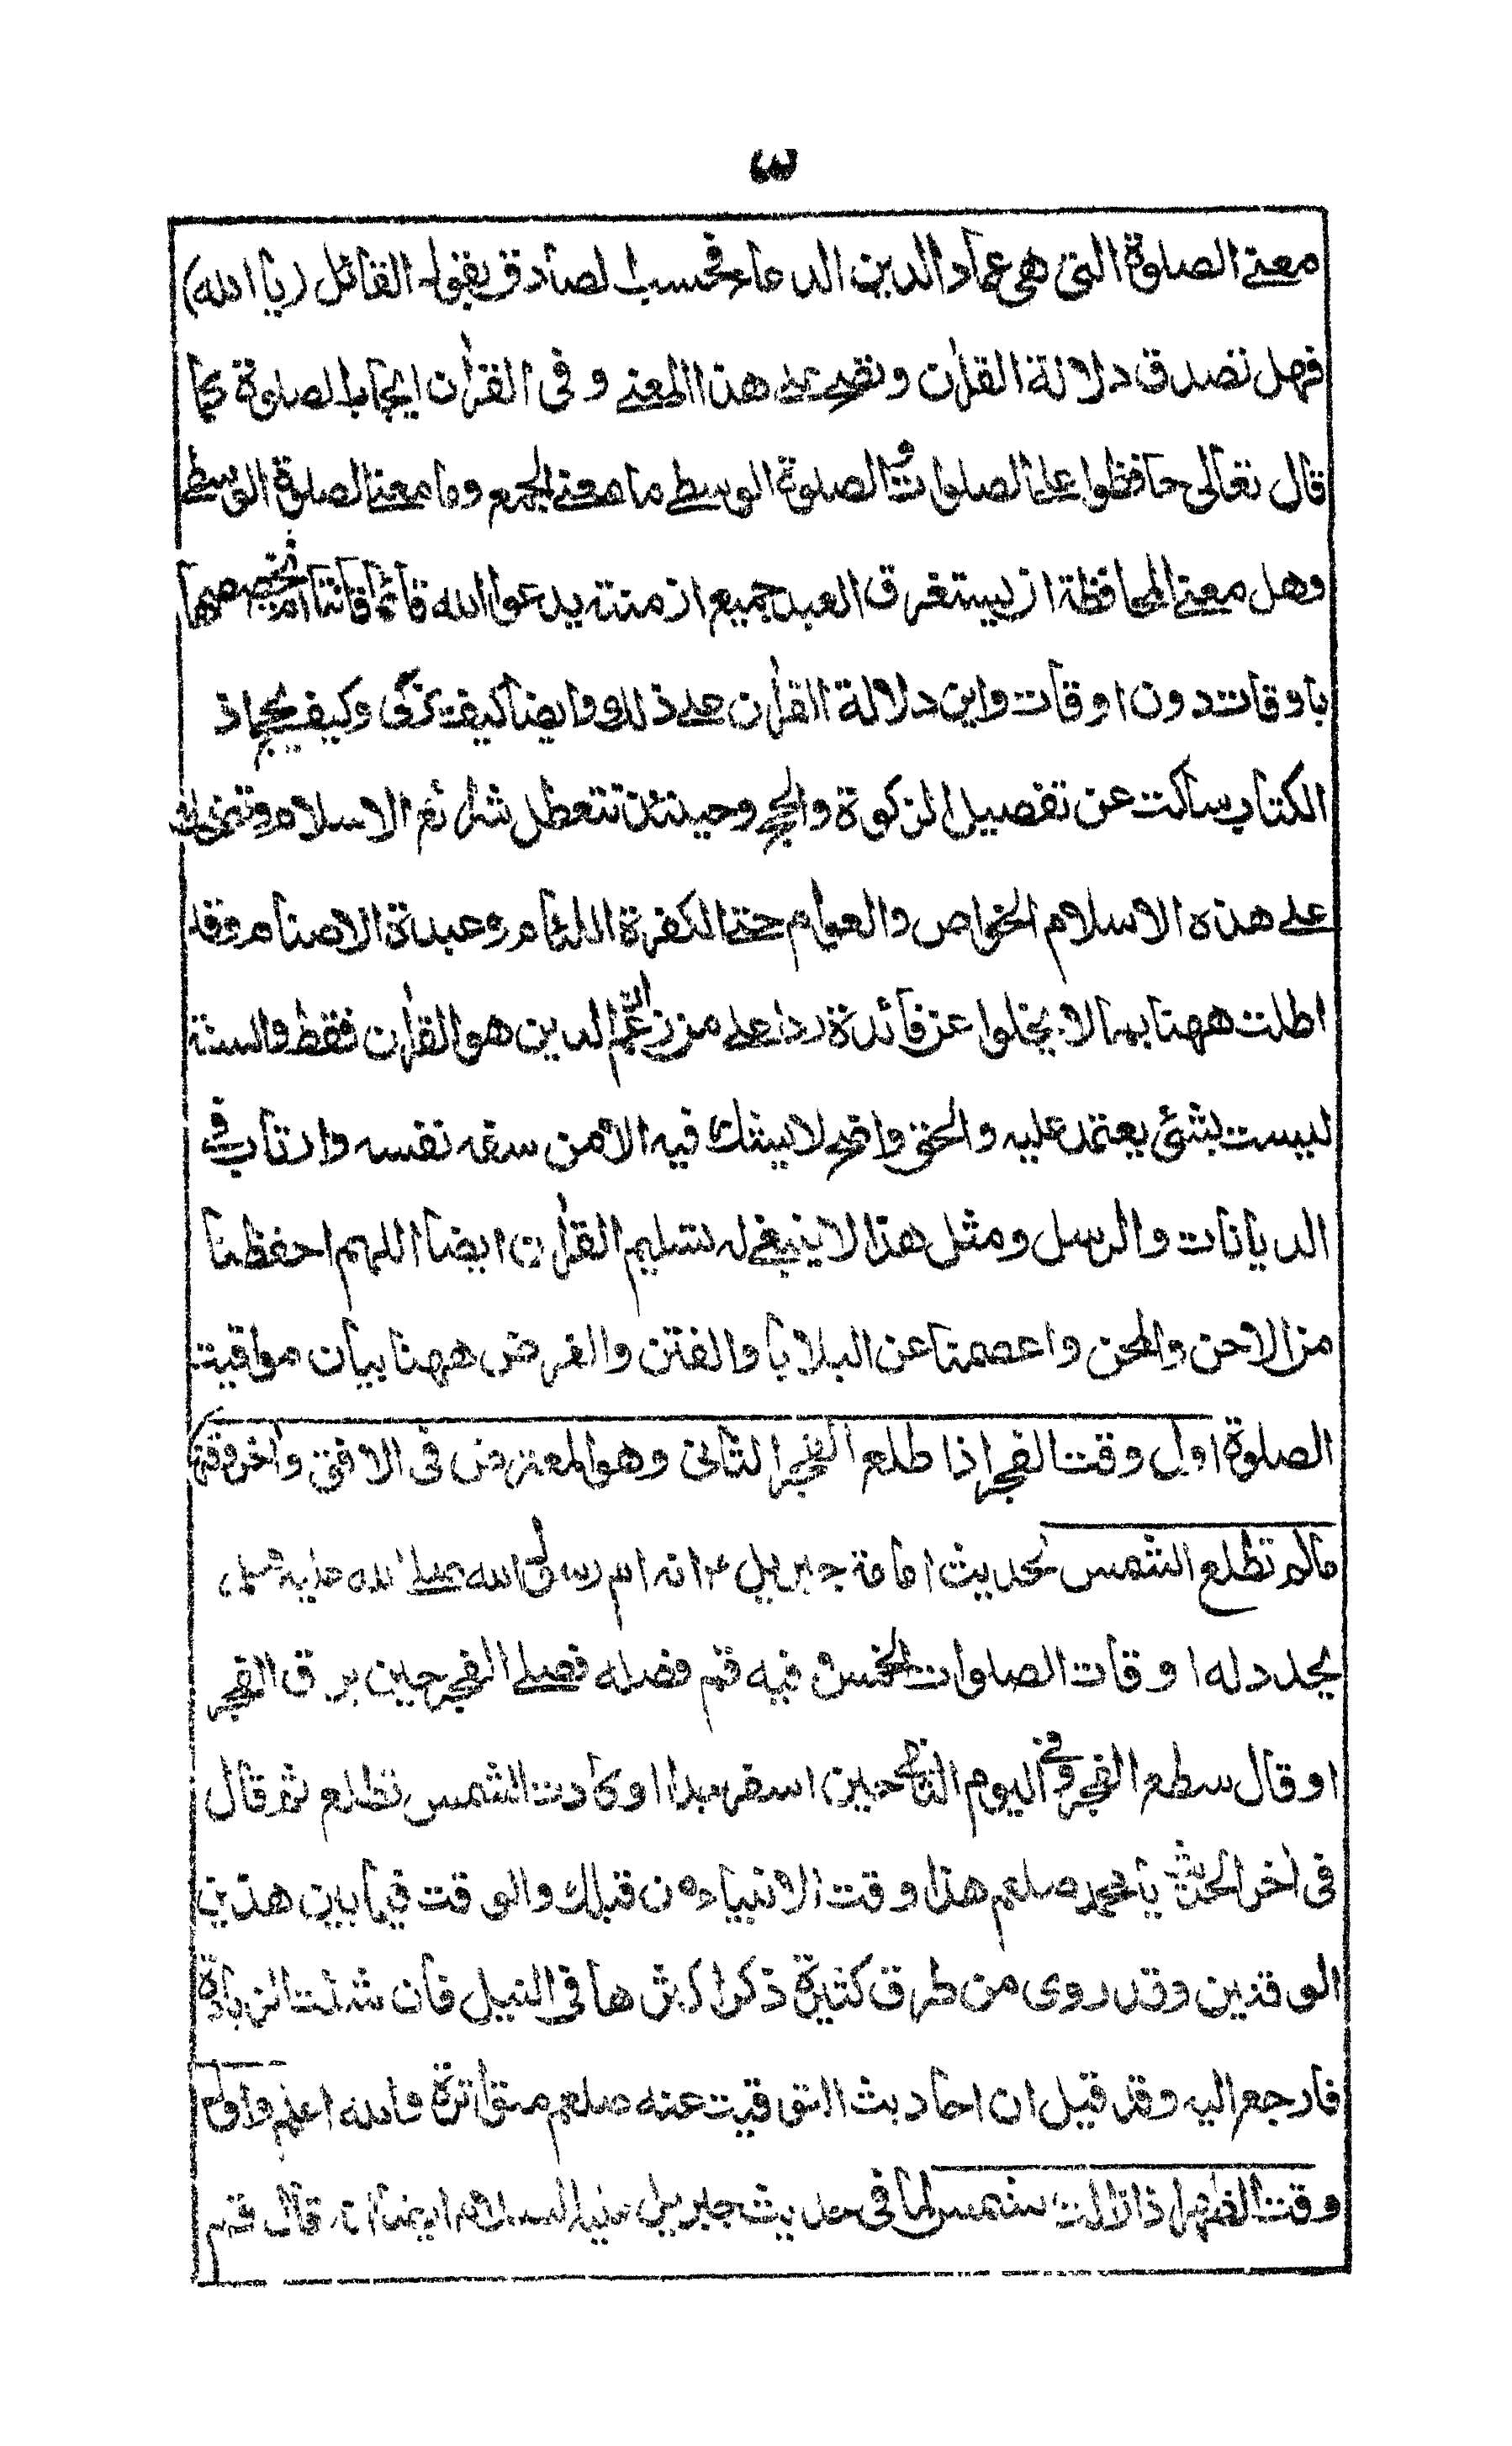 ٣
معنى الصلوة التى هى عماد الدين الدعاء فحسب لصادق بقول القائل (يا الله)
فهل تصدق دلالة القرآن ونصح على هذا المعنى وفى القرآن ايجاب الصلوة كما
قال تعالى حافظوا على الصلوات والصلوة الوسطى ما معنى الجمع وما معنى الصلوة الوسطى
وهل معنى المحافظة ان يستغرق العبد جميع ازمنته يدعوا الله قائما قانتا ام تخصيصها
باوقات دون اوقات واين دلالة القرآن على ذلك وايضا كيف نزكى وكيف نحج اذ
الكتاب ساكت عن تفصيل الزكوة والحج وحينئذ تتعطل شرائع الاسلام
على هذه الاسلام الخواص والعوام حتى الكفرة اللئام وعبدة الاصنام وقد
اطلت ههنا بما لا يخلوا عن فائدة ردا على من زعم ان الدين هو القرآن فقط والسنة
ليست بشئ يعتمد عليه والحق واضح لا يشك فيه الا من سفه نفسه وارتاب فى
الديانات والرسل ومثل هذا لا ينبغى له تسليم القرآن ايضا اللهم احفظنا
من الاحن والمحن واعصمنا عن البلايا والفتن والغرض ههنا بيان مواقيت
الصلوة اول وقت الفجر اذا طلع الفجر الثانى وهو المعترض فى الافق وآخر وقتها
مالم تطلع الشمس لحديث امامة جبريل ؑ انه ام رسول الله صلى الله عليه وسلم
يحدد له اوقات الصلوات الخمس وفيه قم فصله فصلى الفجر حين برق الفجر
او قال سطع الفجر وفى اليوم الثانى حين اسفر جدا او كادت الشمس تطلع ثم قال
فى اخر الحديث يا محمد صلعم هذا وقت الانبياء من قبلك والوقت فيما بين هذين
الوقتين وقد روى من طرق كثيرة ذكر اكثرها فى النيل فان شئت الزيادة
فارجع اليه وقد قيل ان احاديث التوقيت عنه صلعم متواترة والله اعلم واول
وقت الظهر اذا زالت الشمس لما فى حديث جبريل عليه السلام ايضا انه قال قم